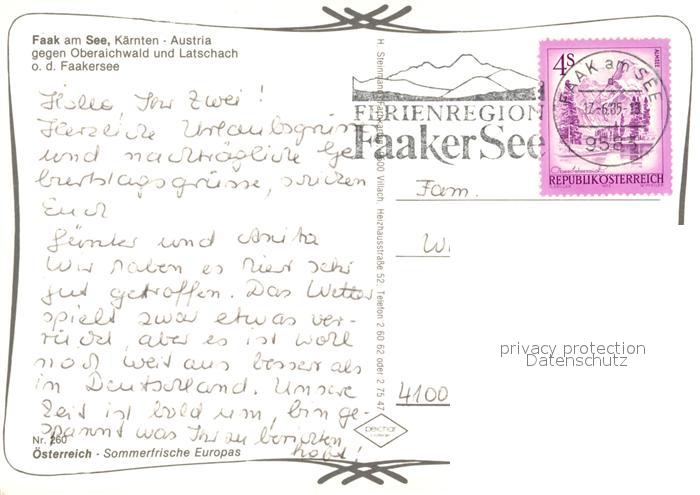 Faak am See, Kärnten - Austria
gegen Oberaichwald und Latschach
o. d. Faakersee
Hallo, Ihr Zwei!
Herzliche Urlaubsgrüsse
und nachträgliche Ge-
burtstagsgrüsse, schicken
Euch
Günter und Anita
Wir haben es hier sehr
gut getroffen. Das Wetter
spielt zwar etwas ver-
rückt, aber es ist wohl
noch weit aus besser als
in Deutschland. Unsere
Zeit ist bald um, bin ge-
spannt was Ihr zu berichten
habt!
Nr. 260
Österreich - Sommerfrische Europas
9500 Villach, Heizhausstraße 52, Telefon 2 60 62 oder 2 75 47
FERIENREGION
Faaker See
FAAK am SEE
17.-6.85
4S
ALMSEE
Oberösterreich
REPUBLIK ÖSTERREICH
Fam.
4100
privacy protection
Datenschutz